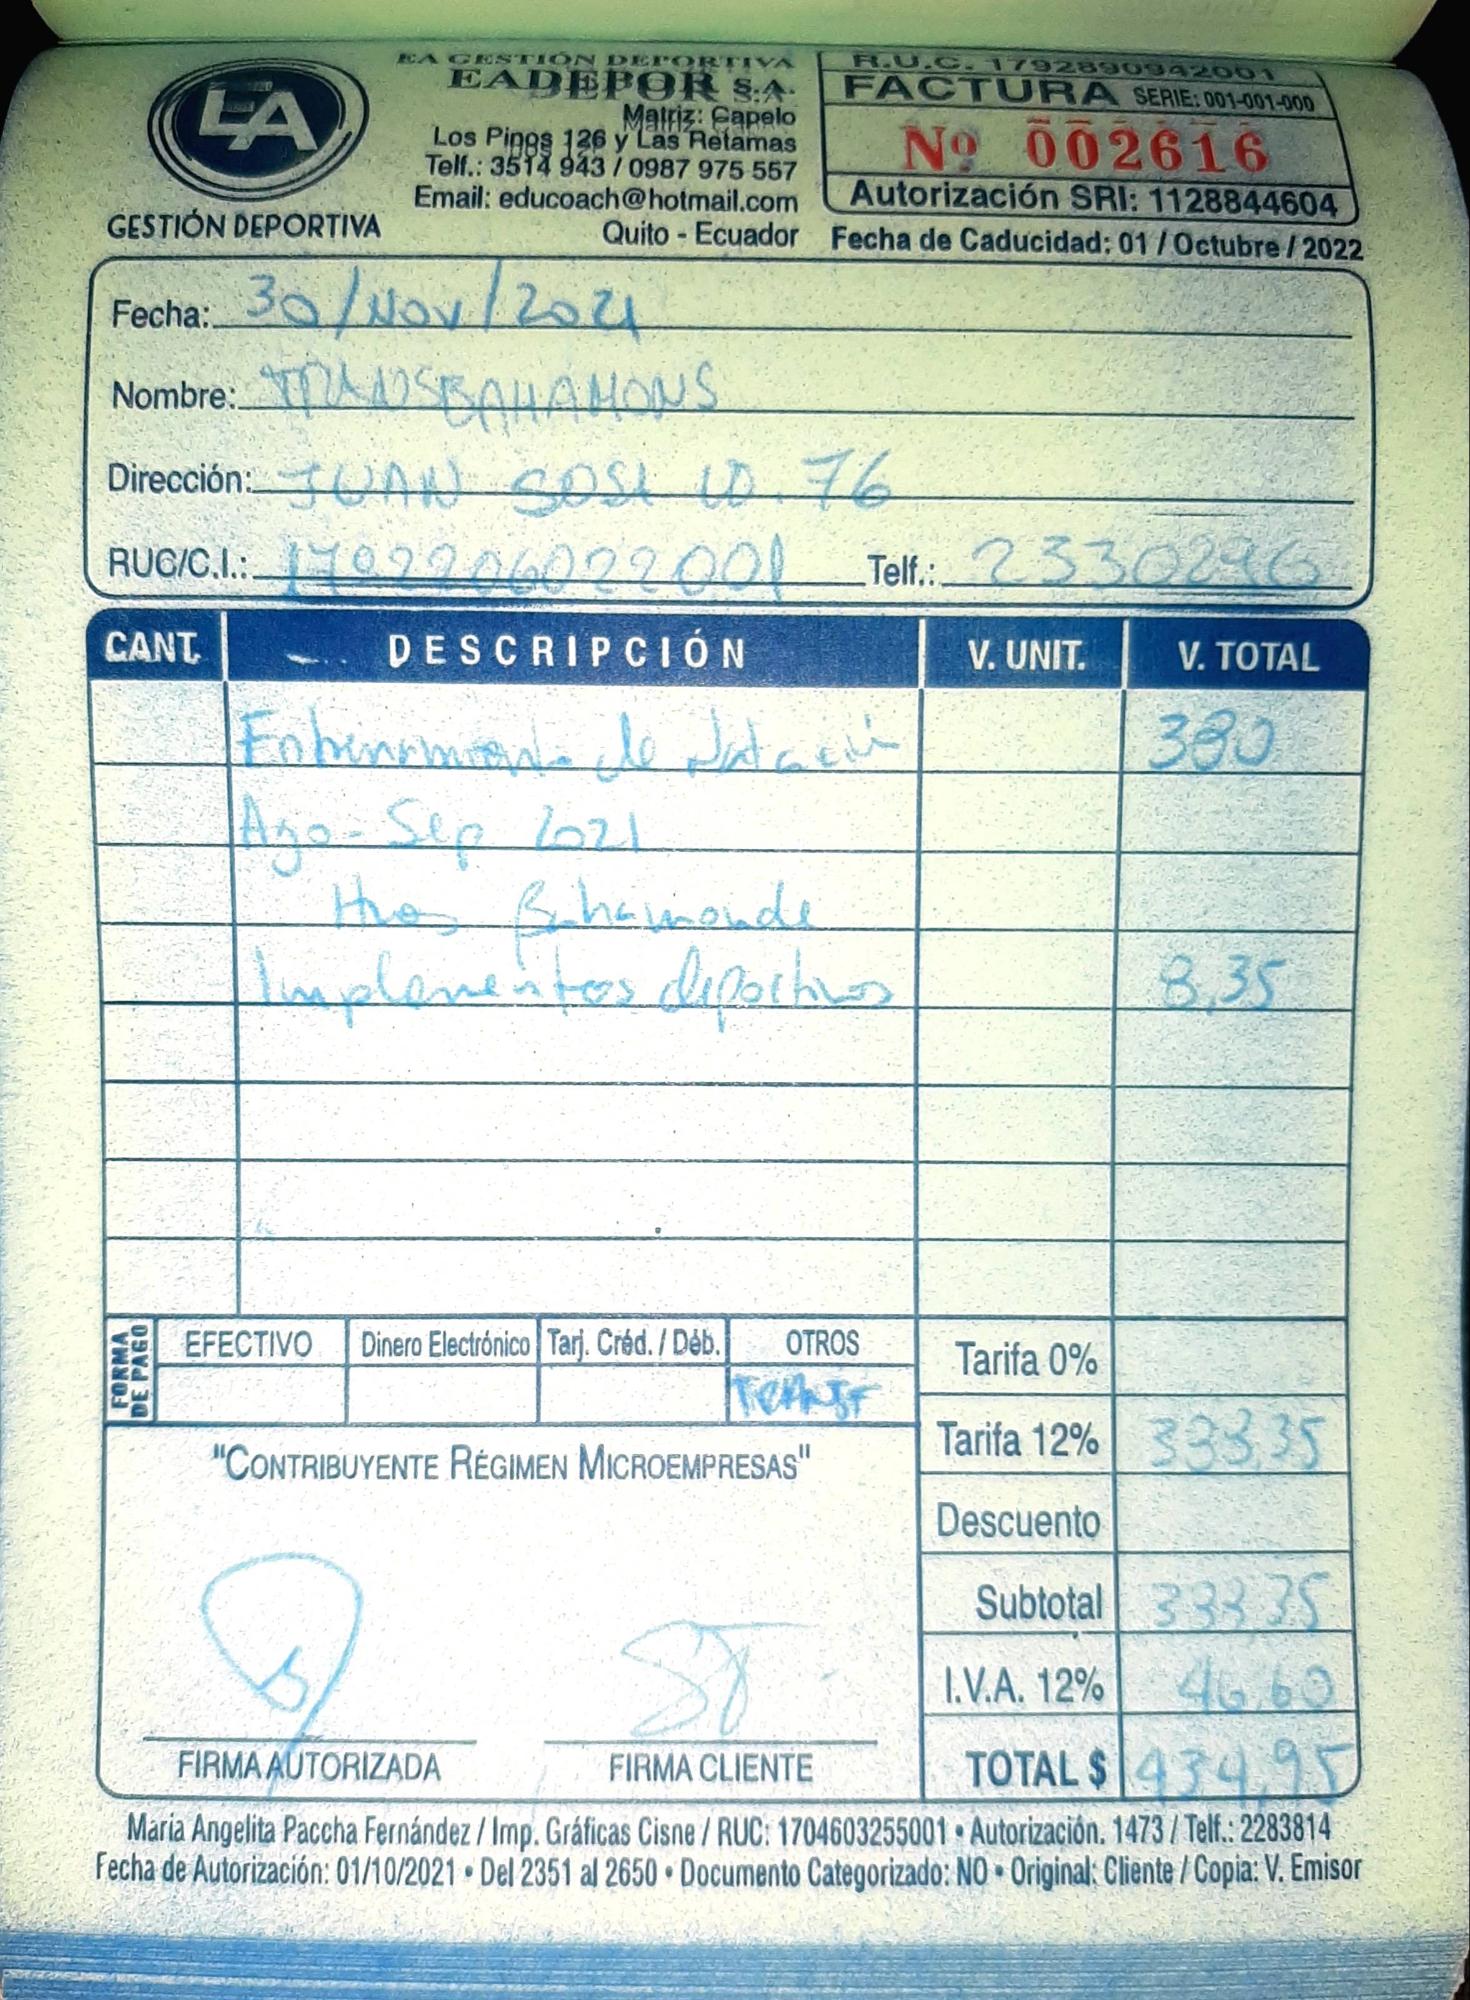 EA GESTIÓN DEPORTIVA
EADEPOR S.A.
Matriz: Capelo
Los Pinos 126 y Las Retamas
Telf.: 3514 943 / 0987 975 557
Email: educoach@hotmail.com
Quito - Ecuador
EA
GESTIÓN DEPORTIVA
R.U.C. 1792890942001
FACTURA SERIE: 001-001-000
Nº 002616
Autorización SRI: 1128844604
Fecha de Caducidad: 01 / Octubre / 2022
Fecha: 30/Nov/2021
Nombre: TRANSBAHAMONS
Dirección: JUAN 76
RUC/C.I.: 1792206022001 Telf.: 2330296
CANT. DESCRIPCIÓN V. UNIT. V. TOTAL
Entrenamiento de Natación 380
Ago - Sep 2021
Hnos Bahamonde
Implementos deportivos 8,35
FORMA DE PAGO EFECTIVO Dinero Electrónico Tarj. Créd. / Déb. OTROS
TRANSF
Tarifa 0%
Tarifa 12% 388,35
Descuento
Subtotal 388,35
I.V.A. 12% 46,60
TOTAL $ 434,95
"CONTRIBUYENTE RÉGIMEN MICROEMPRESAS"
FIRMA AUTORIZADA FIRMA CLIENTE
María Angelita Paccha Fernández / Imp. Gráficas Cisne / RUC: 1704603255001 • Autorización. 1473 / Telf.: 2283814
Fecha de Autorización: 01/10/2021 • Del 2351 al 2650 • Documento Categorizado: NO • Original: Cliente / Copia: V. Emisor